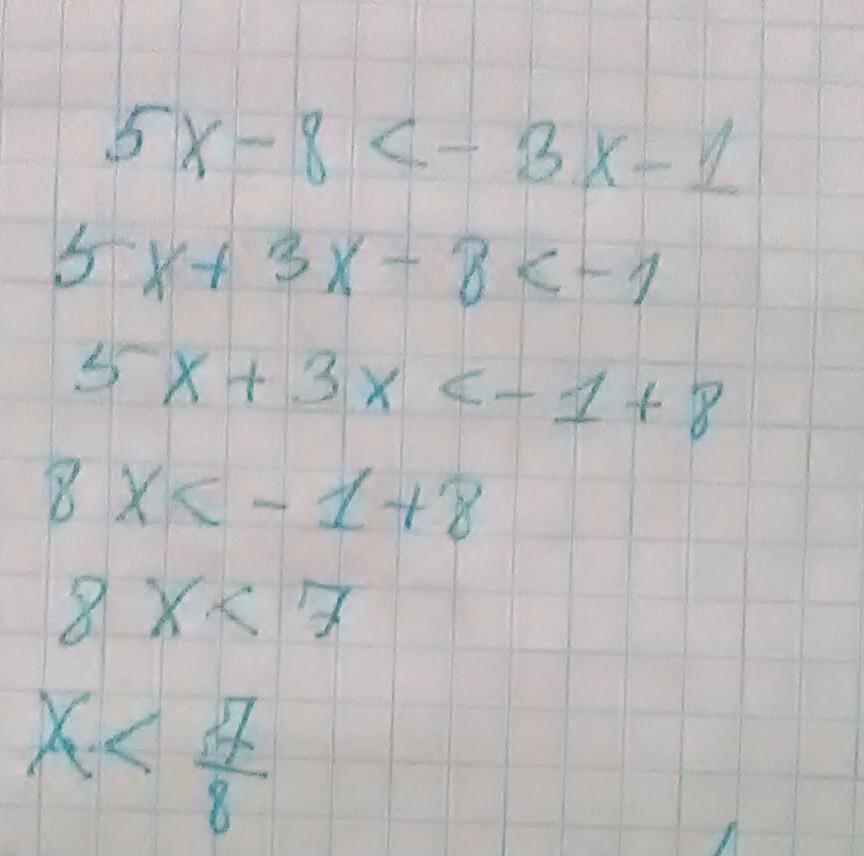 5x - 8 < - 3x - 1
5x + 3x - 8 < - 1
5x + 3x < - 1 + 8
8x < - 1 + 8
8x < 7
x < 7/8